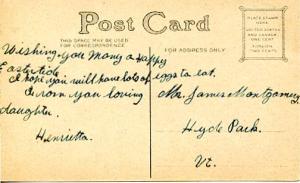 Post Card
THIS SPACE MAY BE USED
FOR CORRESPONDENCE
FOR ADDRESS ONLY
PLACE STAMP
HERE
UNITED STATES
AND CANADA
ONE CENT
FOREIGN
TWO CENTS
Wishing you Many a Happy
Eastertide
I hope you will have lots of eggs to eat.
From you loving
daughter.
Henrietta.
Mr. James Montgomery
Hyde Park.
Vt.